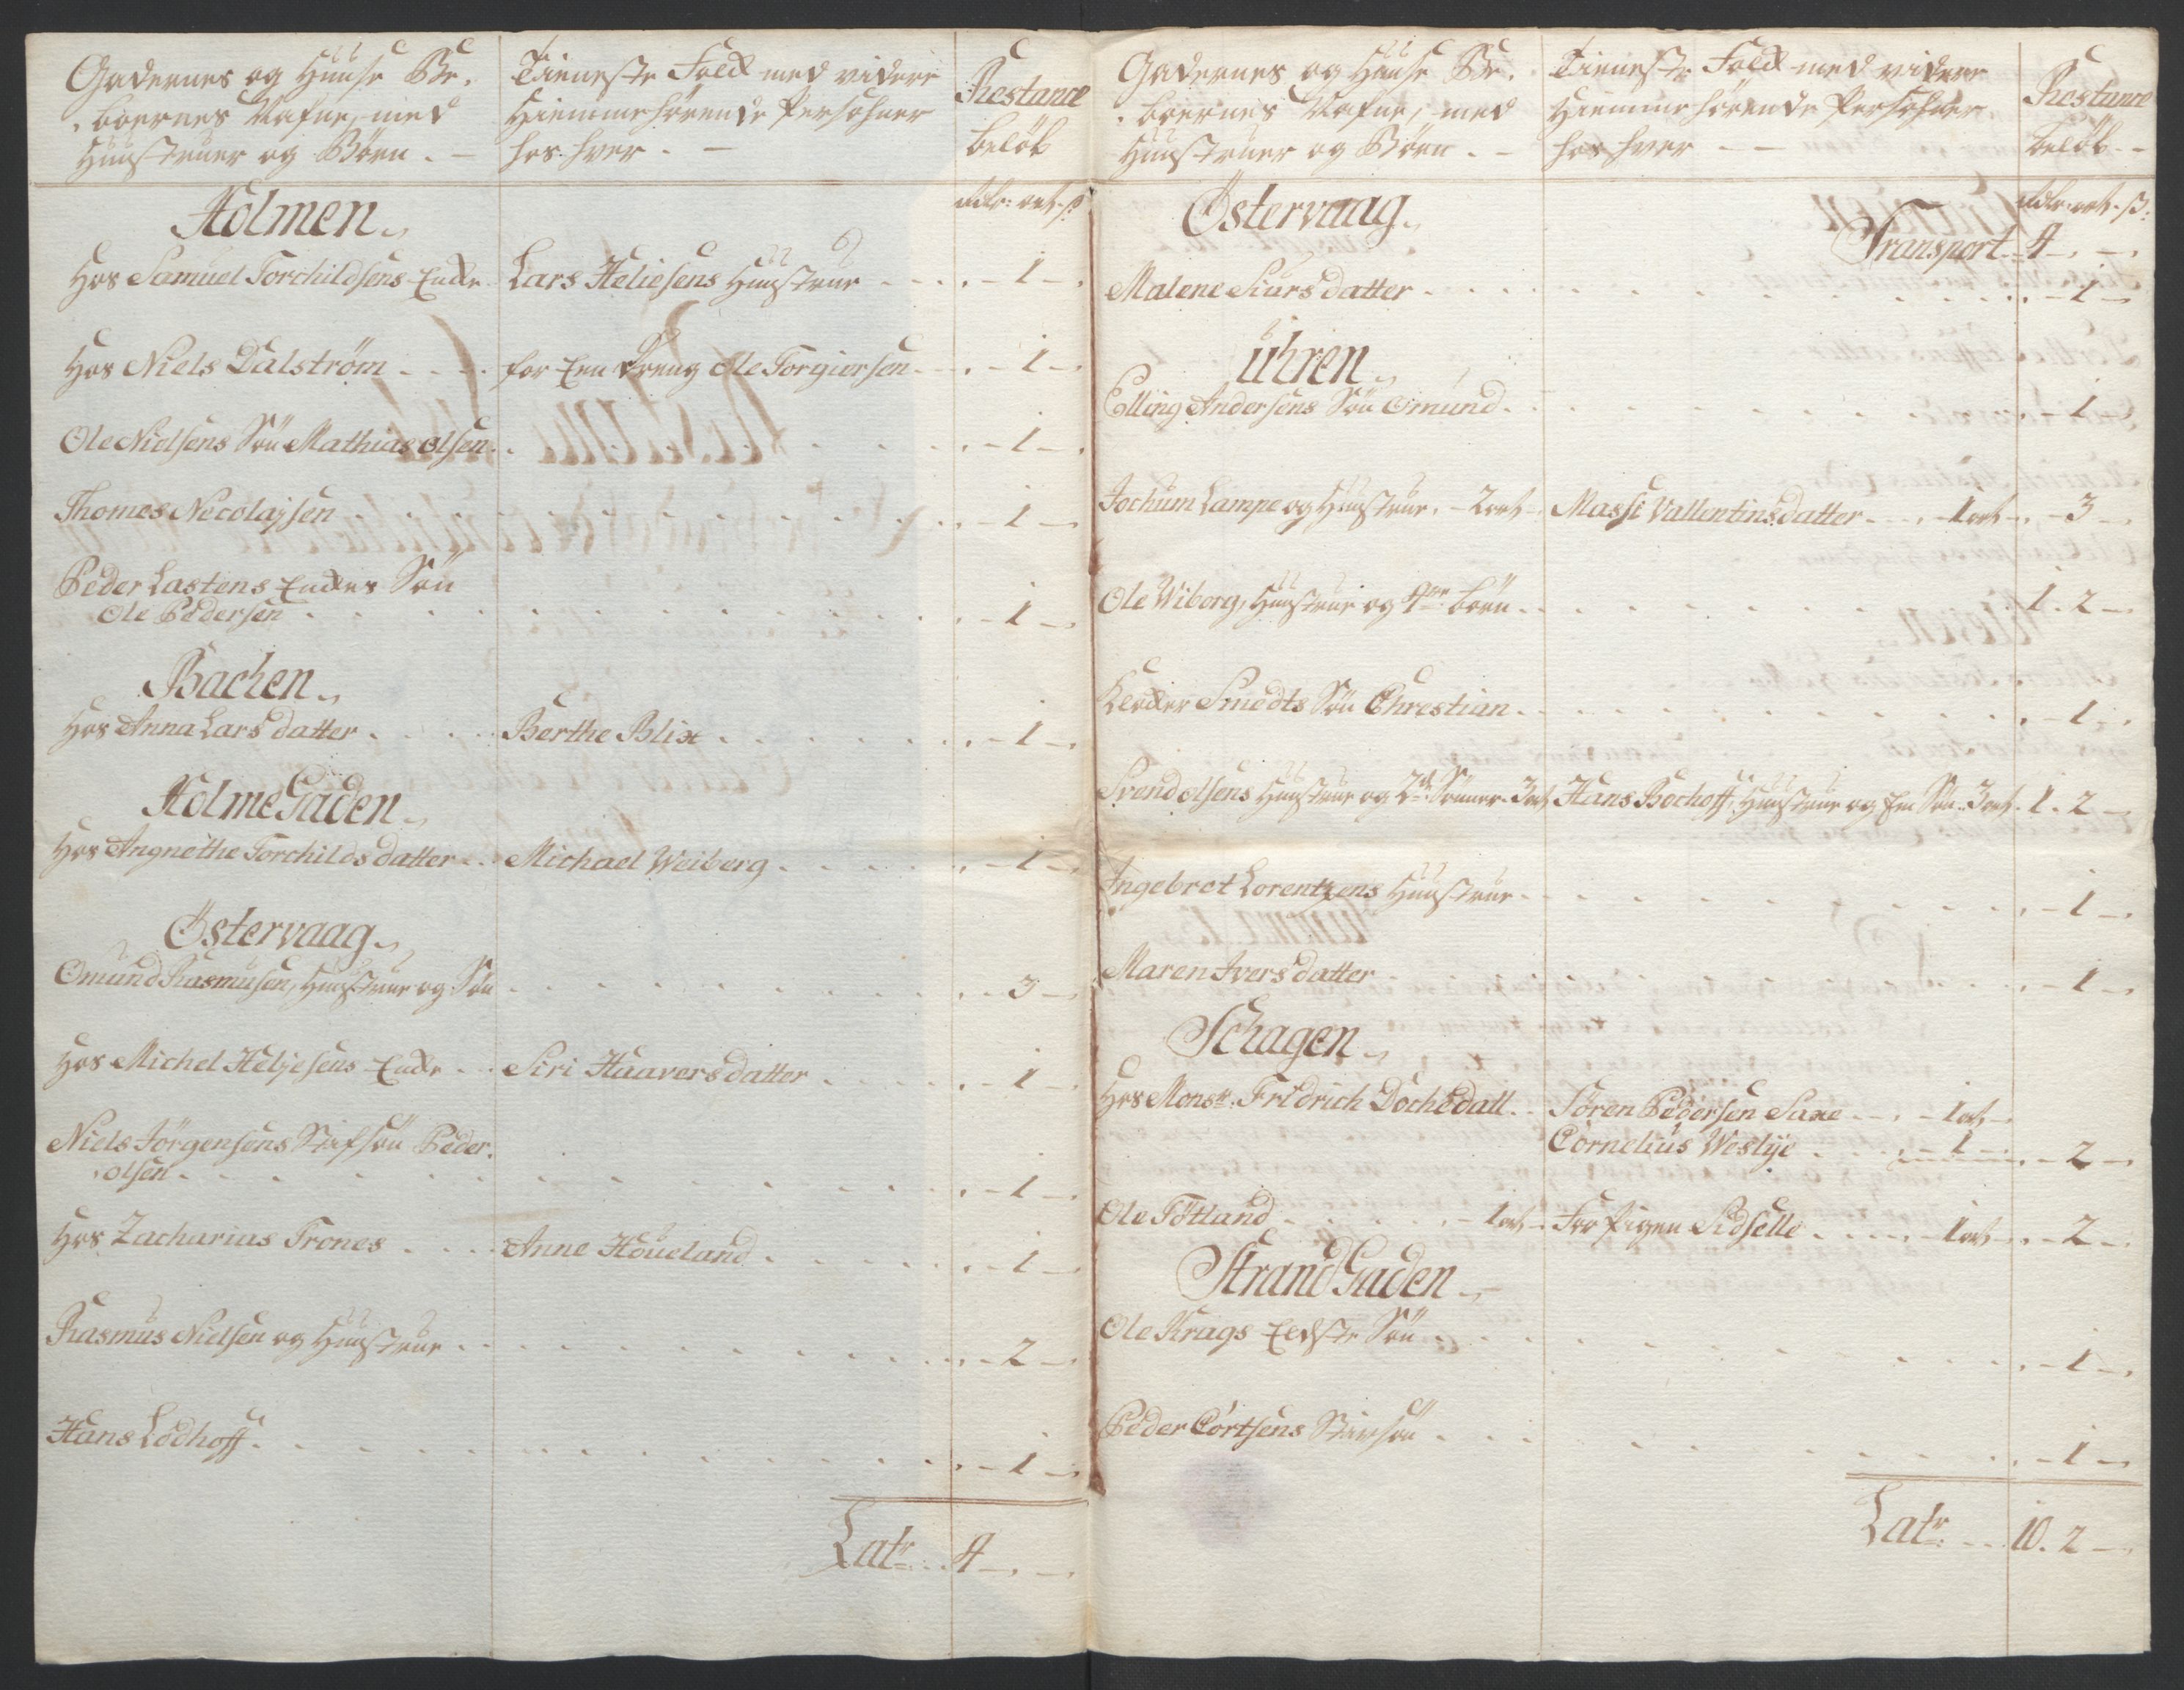 Gadernes og Huuse Be-
boernes Nafne, med
Huustruer og Børn. -
Tieneste Folck med videre
Hiemmehørende Persohner
hos hver. -
Restance
beløb
rdlr: ort. ß
Holmen.
Hos Samuel Torchildsens Encke Lars Heliesens Huustrue . . . - 1 -
Hos Niels Dalstrøm . . . for Een Dreng Ole Torgiersen . . - 1 -
Ole Nielsens Søn Mathias Olsen . . . - 1 -
Thomes Necolajsen . . . - 1 -
Peder Lastens Enckes Søn
Ole Pedersen . . . - 1 -
Bachen.
Hos Anna Lars datter . . . Berthe Blix . . . - 1 -
Holme Gaden.
Hos Angnethe Torchilds datter . . Michael Weiberg . . . - 1 -
Östervaag.
Omund Rasmusen, Huustrue og Søn . . . - 3 -
Hos Michel Heljesens Encke . . Siri Haavers datter . . . - 1 -
Niels Jörgensens Stifsøn Peder
Olsen . . . - 1 -
Hos Zacharias Trones . . . Anne Høueland . . . - 1 -
Rasmus Nielsen og Huustrue . . . - 2 -
Hans Lodhoff . . . - 1 -
Latr. . . 4 - . -
Gadernes og Huuse Be-
boernes Nafne, med
Huustruer og Børn. -
Tieneste Folck med videre
Hiemmehørende Persohner
hos hver - -
Restance
beløb - -
rdlr. ort. ß:
Östervaag.
Transport. . 4 - . -
Malene Siurs datter . . . - 1 -
Uhren.
Elling Andersens Søn Omund . . . - 1 -
Jochum Lampe og Huustrue. - 2 ort - Massi Vallentinsdatter . . . 1 ort - . - 3 -
Ole Wiborg, Huustrue og 4re børn . . . 1. 2 -
Klocker Smedts Søn Chrestian . . . - 1 -
Svend Olsens Huustrue og 2de Sønner. 3 ort Hans Bochoff, Huustrue og Een Søn. 3 ort. 1. 2 -
Ingebret Lorentzens Huustrue . . . - 1 -
Maren Ivers datter . . . - 1 -
Schagen.
Hos Monsr: Fridrich Dochedall . . Søren Pedersen Saxe . . . 1 ort -
Cornelius Weslye . . . 1 - . - 2 -
Ole Tötland . . . - 1 ort - For Pigen Sidselle . . . 1 ort - . - 2 -
Strand Gaden.
Ole Krags Eldste Søn . . . - 1 -
Peder Cortsens Stivsøn . . . - 1 -
Latr. . . 10. 2 -